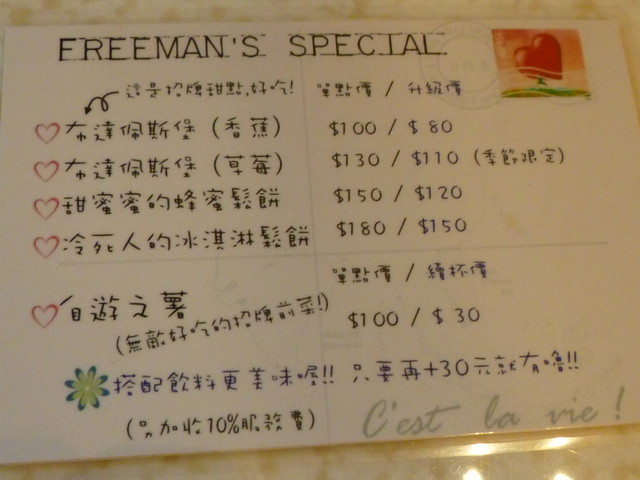 FREEMAN'S SPECIAL
這是招牌甜點,好吃! 單點價 / 升級價
布達佩斯堡 (香蕉) $100 / $80
布達佩斯堡 (草莓) $130 / $110 (季節限定)
甜蜜蜜的蜂蜜鬆餅 $150 / $120
冷死人的冰淇淋鬆餅 $180 / $150
單點價 / 續杯價
自遊之薯 $100 / $30
(無敵好吃的招牌前菜!)
搭配飲料更美味喔!! 只要再+30元就有嚕!!
(另加收10%服務費)
C'est la vie!